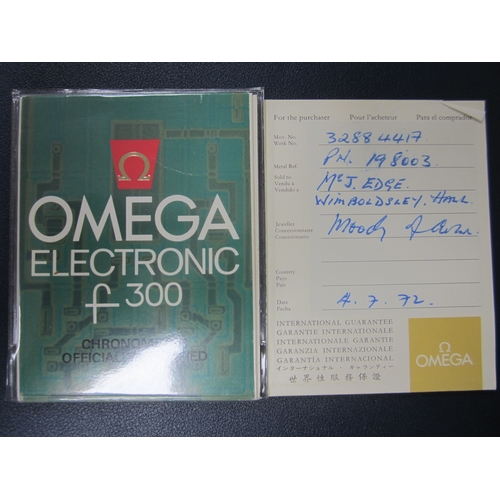 Ω
OMEGA
ELECTRONIC
f300
OFFICIALLY
For the purchaser Pour l'acheteur Para el comprador
Mov. No.
Werk No.
32884417
Metal Ref.
PN. 198003.
Sold to
Vendu à
Vendido a
Mc J. EDGE.
WIMBOLDSLEY. HALL.
Jeweller
Concessionnaire
Moody
Country
Pays
País
Date
Fecha
4.7.72.
INTERNATIONAL GUARANTEE
GARANTIE INTERNATIONALE
INTERNATIONALE GARANTIE
GARANZIA INTERNAZIONALE
GARANTIA INTERNACIONAL
インターナショナル・ギャランティー
世界性服務保證
Ω
OMEGA